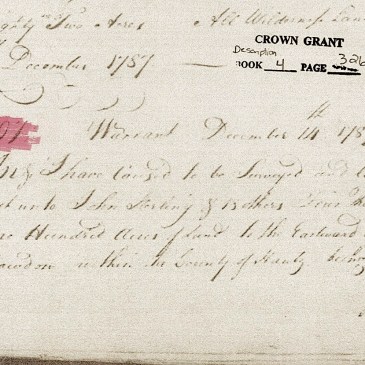 Two Acres All Wilderness Lan
December 1787
CROWN GRANT
Description
BOOK 4 PAGE 326
Warrant December 14th 178
I have Caused to be Surveyed and
unto John Sterling & 13 others
Hundred Acres of Land to the Eastward
within the County of Hants